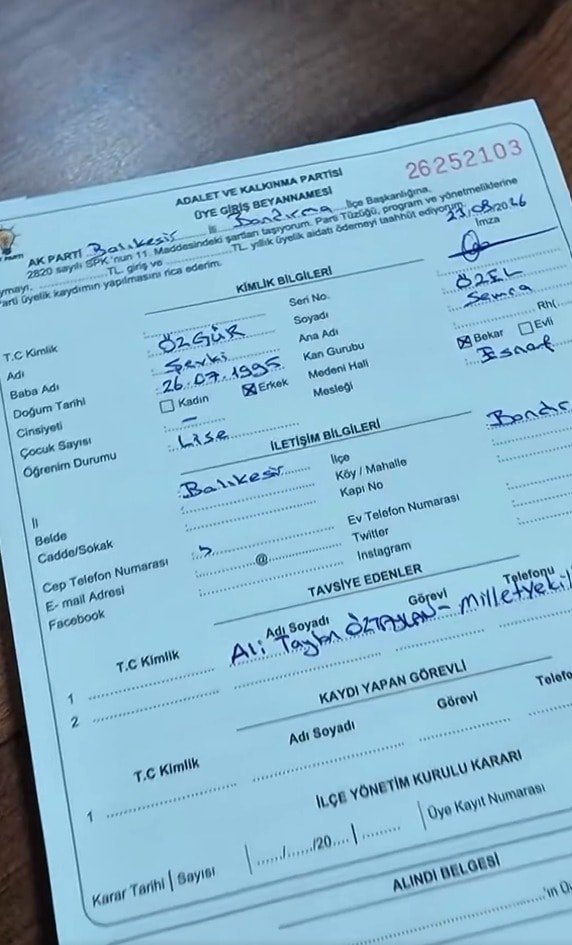 26252103
ADALET VE KALKINMA PARTİSİ
ÜYE GİRİŞ BEYANNAMESİ
AK PARTİ Balıkesir İli Bandırma İlçe Başkanlığına,
2820 sayılı SPK'nun 11. Maddesindeki şartları taşıyorum. Parti Tüzüğü, program ve yönetmeliklerine
uymayı, ............TL. giriş ve ............TL. yıllık üyelik aidatı ödemeyi taahhüt ediyorum.
Parti üyelik kaydımın yapılmasını rica ederim.
İmza
KİMLİK BİLGİLERİ
T.C Kimlik Seri No
Adı ÖZGÜR Soyadı ÖZEL
Baba Adı Şevki Ana Adı Semra
Doğum Tarihi 26.07.1995 Kan Gurubu Rh(
Cinsiyeti Kadın Erkek Medeni Hali Bekar Evli
Çocuk Sayısı – Mesleği Esnaf
Öğrenim Durumu Lise
İLETİŞİM BİLGİLERİ
İl Balıkesir İlçe Bandır
Belde Köy / Mahalle
Cadde/Sokak Kapı No
Cep Telefon Numarası 5 Ev Telefon Numarası
E- mail Adresi @ Twitter
Facebook Instagram
TAVSİYE EDENLER
T.C Kimlik Adı Soyadı Görevi Telefonu
1 Ali Taylan ÖZTAYLAN – Milletvekili
2
KAYDI YAPAN GÖREVLİ
T.C Kimlik Adı Soyadı Görevi Telefo
1
İLÇE YÖNETİM KURULU KARARI
Karar Tarihi | Sayısı | ....../....../20.... | ......... | Üye Kayıt Numarası
ALINDI BELGESİ
'ın Ü